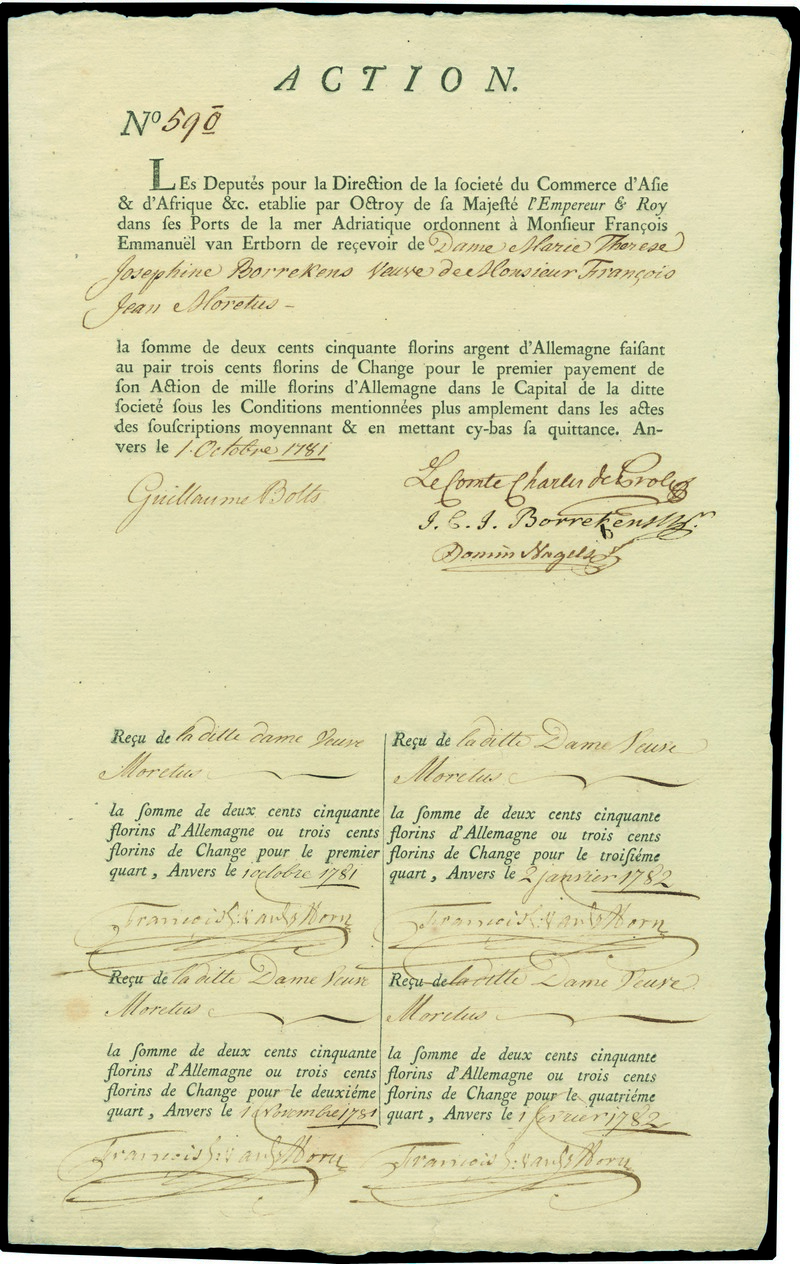 ACTION.
Nº 590
LEs Deputés pour la Direction de la ſocieté du Commerce d'Aſie
& d'Afrique &c. etablie par Octroy de ſa Majeſté l'Empereur & Roy
dans ſes Ports de la mer Adriatique ordonnent à Monſieur François
Emmanuël van Ertborn de reçevoir de Dame Marie Therese
Josephine Borrekens Veuve de Monsieur François
Jean Moretus -
la ſomme de deux cents cinquante florins argent d'Allemagne faiſant
au pair trois cents florins de Change pour le premier payement de
ſon Action de mille florins d'Allemagne dans le Capital de la ditte
ſocieté ſous les Conditions mentionnées plus amplement dans les actes
des ſouſcriptions moyennant & en mettant cy-bas ſa quittance. An-
vers le 1 Octobre 1781
Guillaume Bolts
Le Comte Charles de Proli
J. E. J. Borrekens
Domin Nagels
Reçu de la ditte dame Veuve
Moretus
la ſomme de deux cents cinquante
florins d'Allemagne ou trois cents
florins de Change pour le premier
quart, Anvers le 1 octobre 1781
François E: van Ertborn
Reçu de la ditte Dame Veuve
Moretus
la ſomme de deux cents cinquante
florins d'Allemagne ou trois cents
florins de Change pour le deuxiéme
quart, Anvers le 1 Novembre 1781
François E: van Ertborn
Reçu de la ditte Dame Veuve
Moretus
la ſomme de deux cents cinquante
florins d'Allemagne ou trois cents
florins de Change pour le troiſiéme
quart, Anvers le 2 janvier 1782
François E: van Ertborn
Reçu de la ditte Dame Veuve
Moretus
la ſomme de deux cents cinquante
florins d'Allemagne ou trois cents
florins de Change pour le quatriéme
quart, Anvers le 1 fevrier 1782
François E: van Ertborn